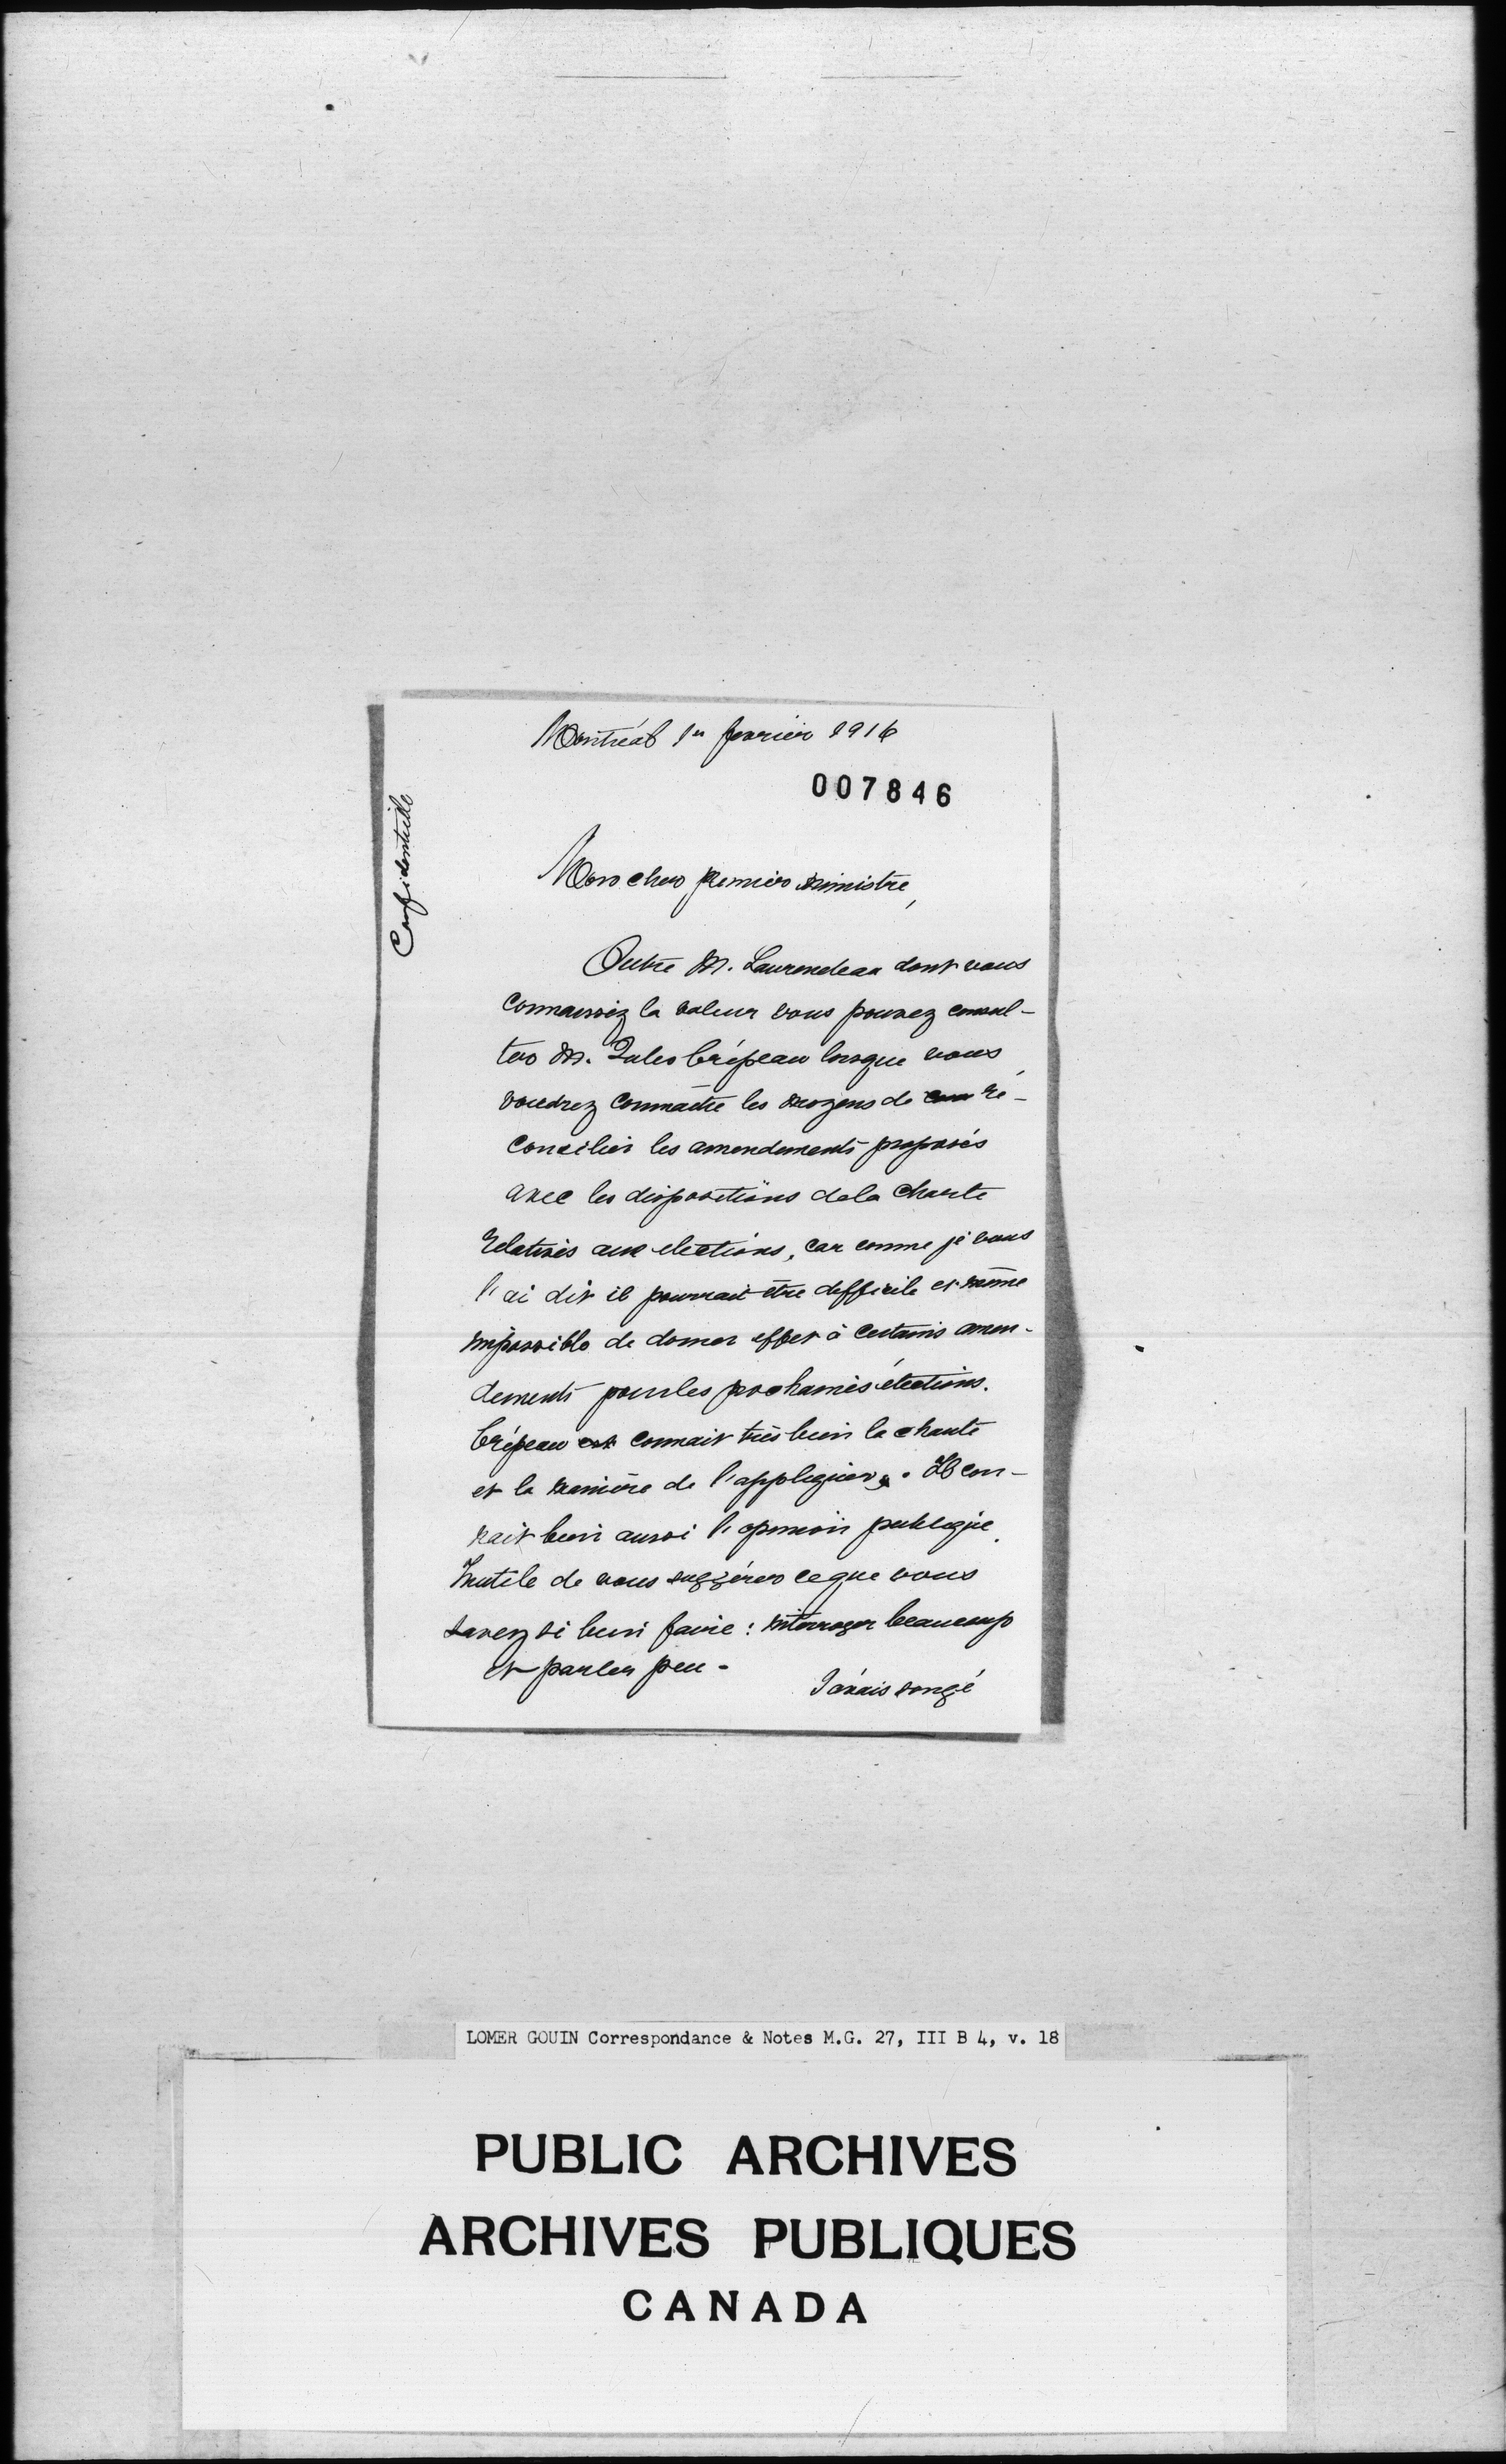 Montréal 1er février 1916
007846
Confidentielle
Mon cher premier ministre,
Outre M. Laurendeau dont vous
connaissez la valeur vous pouvez consul-
ter M. Jules Crépeau lorsque vous
voudrez connaître les moyens de ré-
concilier les amendements proposés
avec les dispositions de la charte
relatives aux élections, car comme je vous
l'ai dit il pourrait être difficile et même
impossible de donner effet à certains amen-
dements pour les prochaines élections.
Crépeau connait très bien la charte
et la manière de l'appliquer. Il con-
nait bien aussi l'opinion publique.
Inutile de vous suggérer ce que vous
savez si bien faire : interroger beaucoup
et parler peu -
J'avais songé
LOMER GOUIN Correspondance & Notes M.G. 27, III B 4, v. 18
PUBLIC ARCHIVES
ARCHIVES PUBLIQUES
CANADA